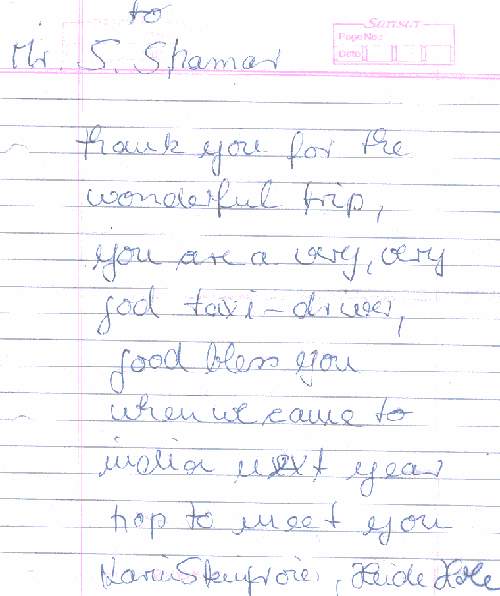 to
Sunsun
Page No.:
Date
Mr. S. Shamar
thank you for the
wonderful trip,
you are a very, very
god taxi-driver,
good bless you
when we came to
india next year
hop to meet you
Karin , Heide